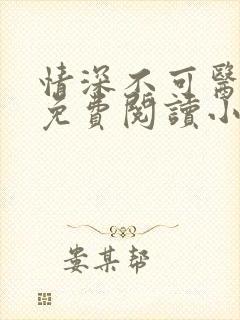 情深不可醫
免費閱讀小
娄某帮